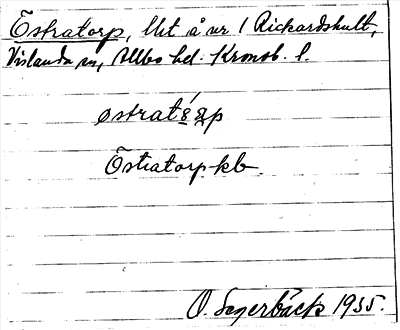 Östratorp, lht å nr 1 Rickardshult,
Vislanda sn, Allbo hd. Kronob. l.
østrat
Östratorp kb.
O. Segerbäck 1935.